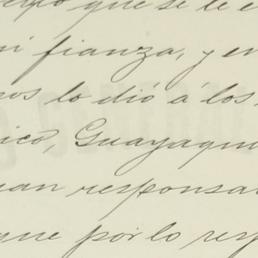 que se le e
mi fianza, y en
nos lo dió á los
ico, Guayaqu
uan responsa
que por lo resp